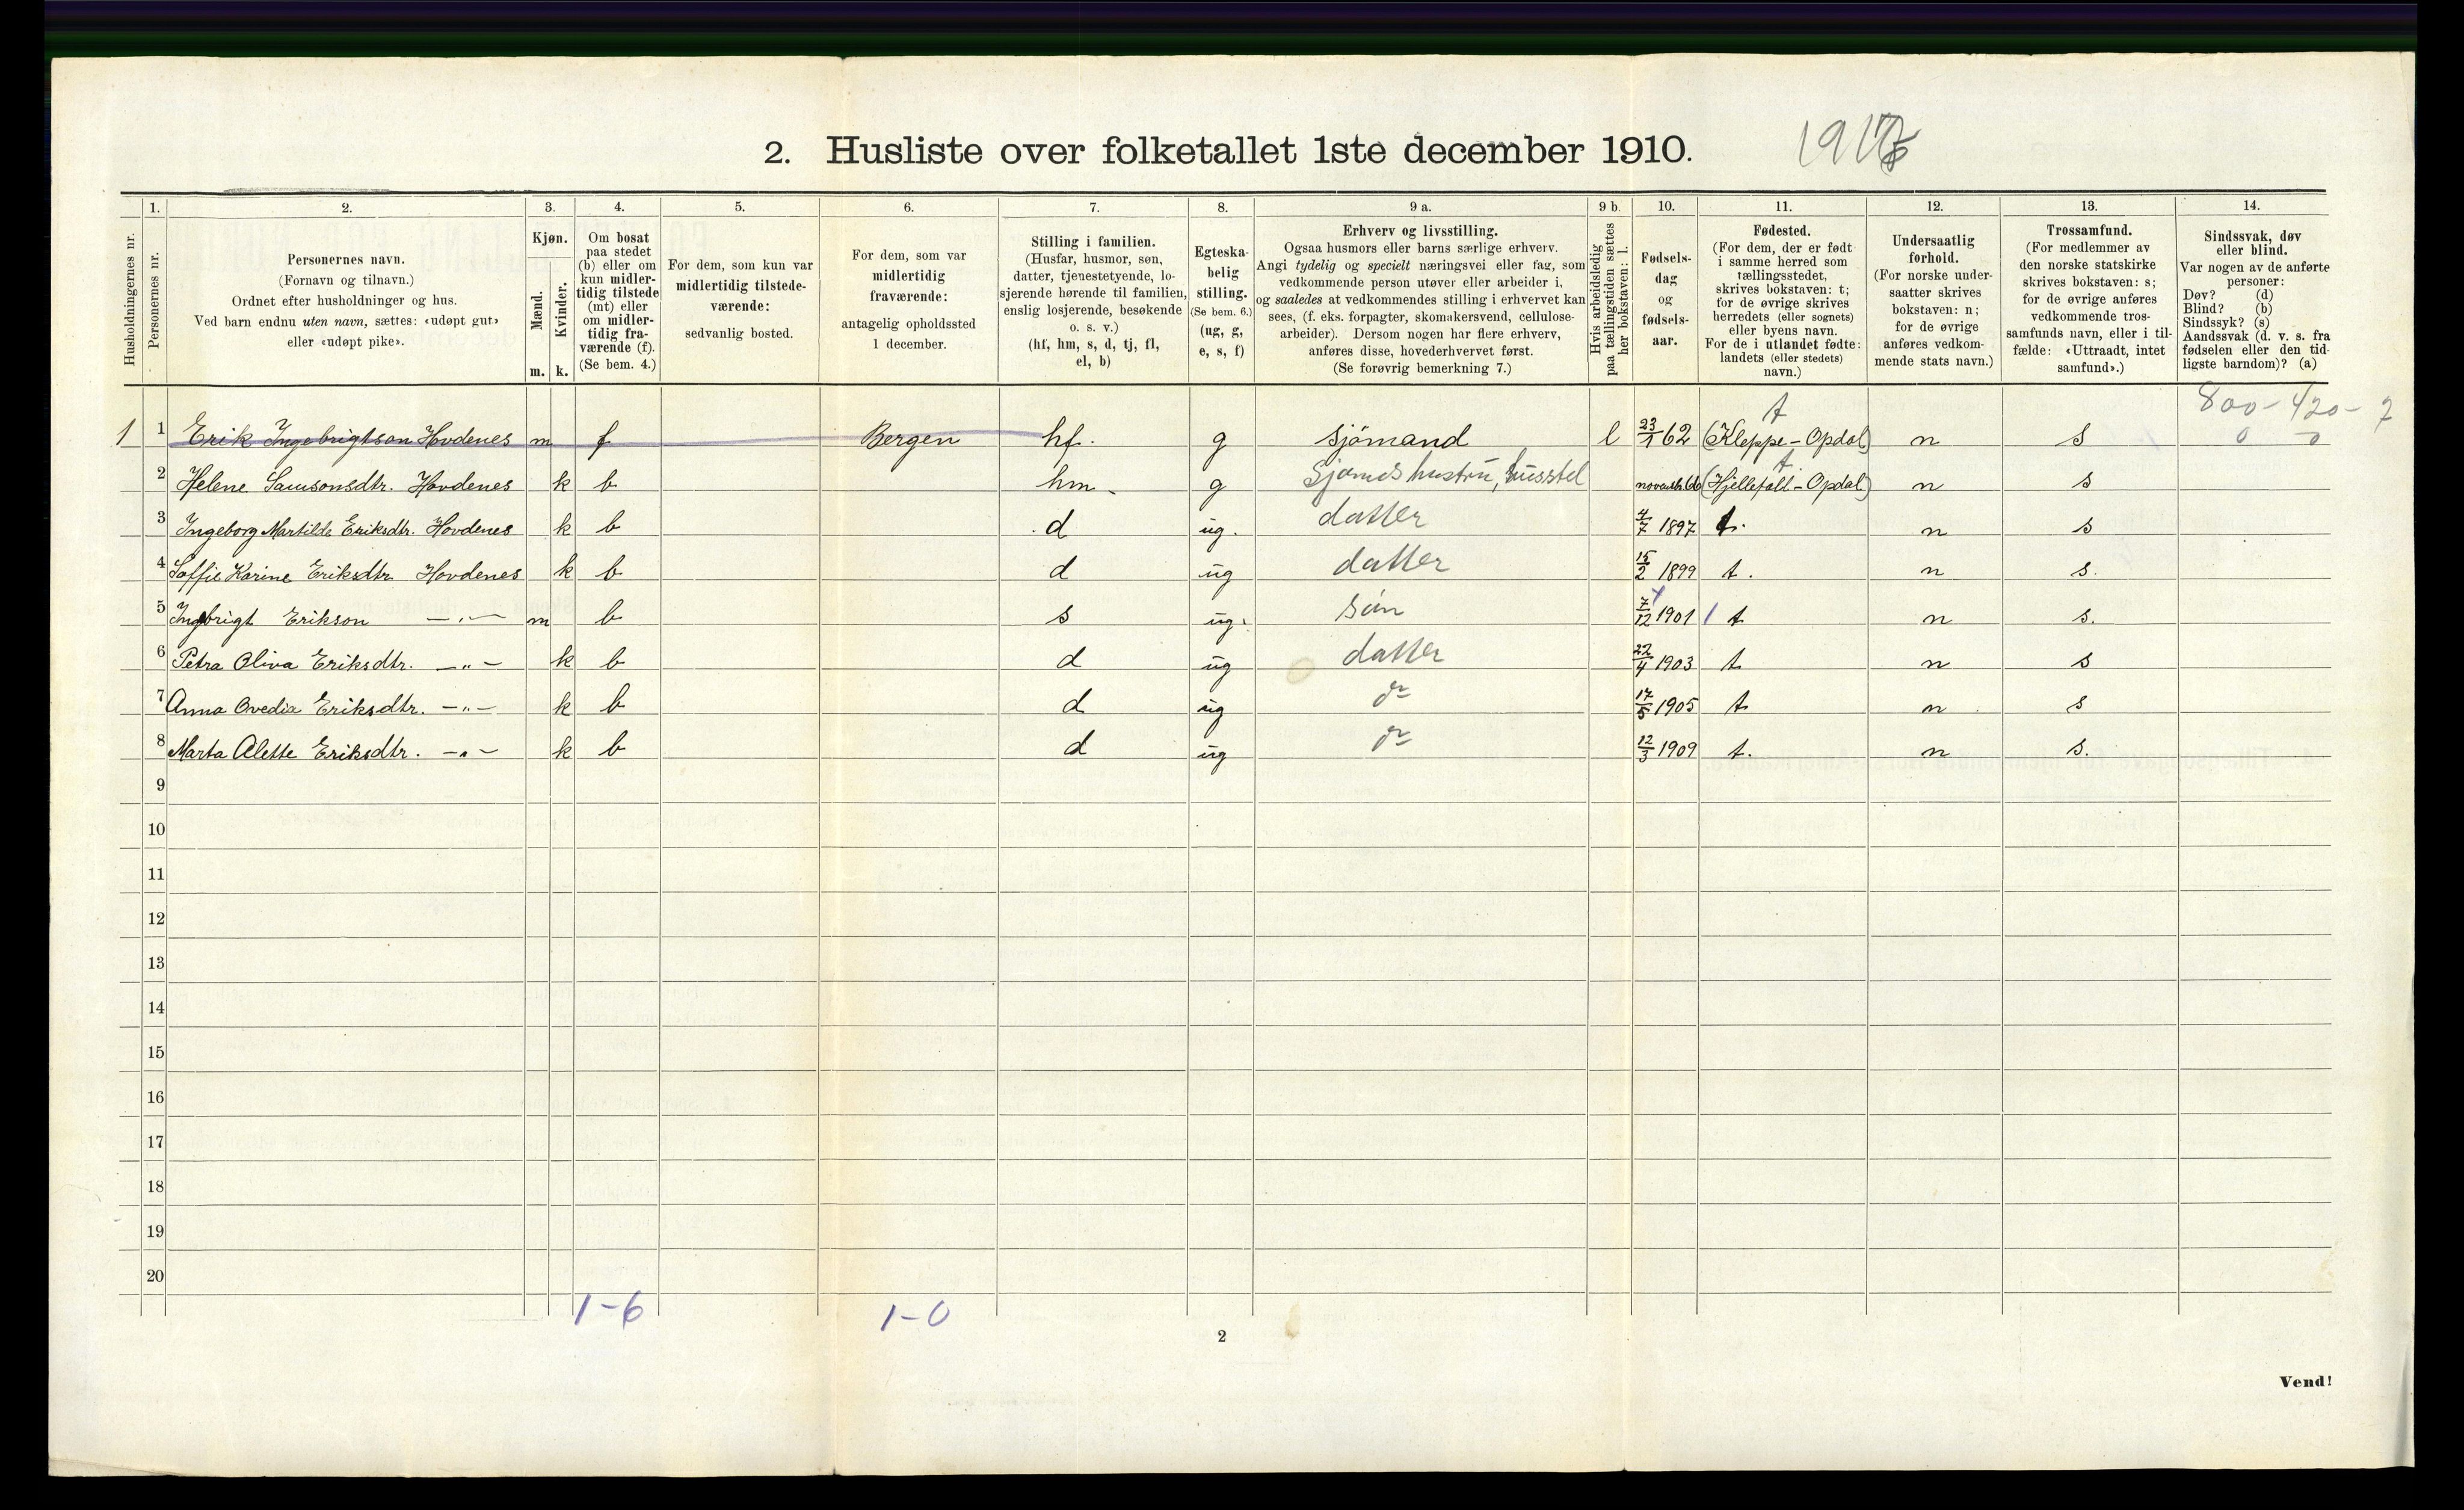 2. Husliste over folketallet 1ste december 1910.
Husholdningernes nr.
1.
Personernes nr.
2.
Personernes navn.
(Fornavn og tilnavn.)
Ordnet efter husholdninger og hus.
Ved barn endnu uten navn, sættes: «udøpt gut»
eller «udøpt pike».
3.
Kjøn.
Mænd.
Kvinder.
m. k.
4.
Om bosat
paa stedet
(b) eller om
kun midler-
tidig tilstede
(mt) eller
om midler-
tidig fra-
værende (f).
(Se bem. 4.)
5.
For dem, som kun var
midlertidig tilstede-
værende:
sedvanlig bosted.
6.
For dem, som var
midlertidig
fraværende:
antagelig opholdssted
1 december.
7.
Stilling i familien.
(Husfar, husmor, søn,
datter, tjenestetyende, lo-
sjerende hørende til familien,
enslig losjerende, besøkende
o. s. v.)
(hf, hm, s, d, tj, fl,
el, b)
8.
Egteska-
belig
stilling.
(Se bem. 6.)
(ug, g,
e, s, f)
9 a.
Erhverv og livsstilling.
Ogsaa husmors eller barns særlige erhverv.
Angi tydelig og specielt næringsvei eller fag, som
vedkommende person utøver eller arbeider i,
og saaledes at vedkommendes stilling i erhvervet kan
sees, (f. eks. forpagter, skomakersvend, cellulose-
arbeider). Dersom nogen har flere erhverv,
anføres disse, hovederhvervet først.
(Se forøvrig bemerkning 7.)
9 b.
Hvis arbeidsledig
paa tællingstiden sættes
her bokstaven: l.
10.
Fødsels-
dag
og
fødsels-
aar.
11.
Fødested.
(For dem, der er født
i samme herred som
tællingsstedet,
skrives bokstaven: t;
for de øvrige skrives
herredets (eller sognets)
eller byens navn.
For de i utlandet fødte:
landets (eller stedets)
navn.)
12.
Undersaatlig
forhold.
(For norske under-
saatter skrives
bokstaven: n;
for de øvrige
anføres vedkom-
mende stats navn.)
13.
Trossamfund.
(For medlemmer av
den norske statskirke
skrives bokstaven: s;
for de øvrige anføres
vedkommende tros-
samfunds navn, eller i til-
fælde: «Uttraadt, intet
samfund».)
14.
Sindssvak, døv
eller blind.
Var nogen av de anførte
personer:
Døv? (d)
Blind? (b)
Sindssyk? (s)
Aandssvak (d. v. s. fra
fødselen eller den tid-
ligste barndom)? (a)
t 800-420-2
1 1 Erik Ingebrigtson Hovdenes m f Bergen hf. g sjömand l 23/1 62 (Kleppe-Opdal) n s 0 0
t
2 Helene Samsonsdtr. Hovdenes k b hm. g Sjømdshustru, husstel (Hjellefall-Opdal) n s
3 Ingeborg Martilde Eriksdtr. Hovdenes k b d ug. datter 4/7 1897 t. n s
4 Soffie Karine Eriksdtr Hovdenes k b d ug datter 15/2 1899 t. n s.
5 Ingebrigt Erikson -"- m b s ug. søn 7/12 1901 t n s.
6 Petra Oliva Eriksdtr. -"- k b d ug datter 22/4 1903 t n s
7 Anna Ovedia Eriksdtr. -"- k b d ug do 17/5 1905 t n s
8 Marta Alette Eriksdtr. -"- k b d ug do 12/3 1909 t. n s.
9
10
11
12
13
14
15
16
17
18
19
20
1-6 1-0
2
Vend!